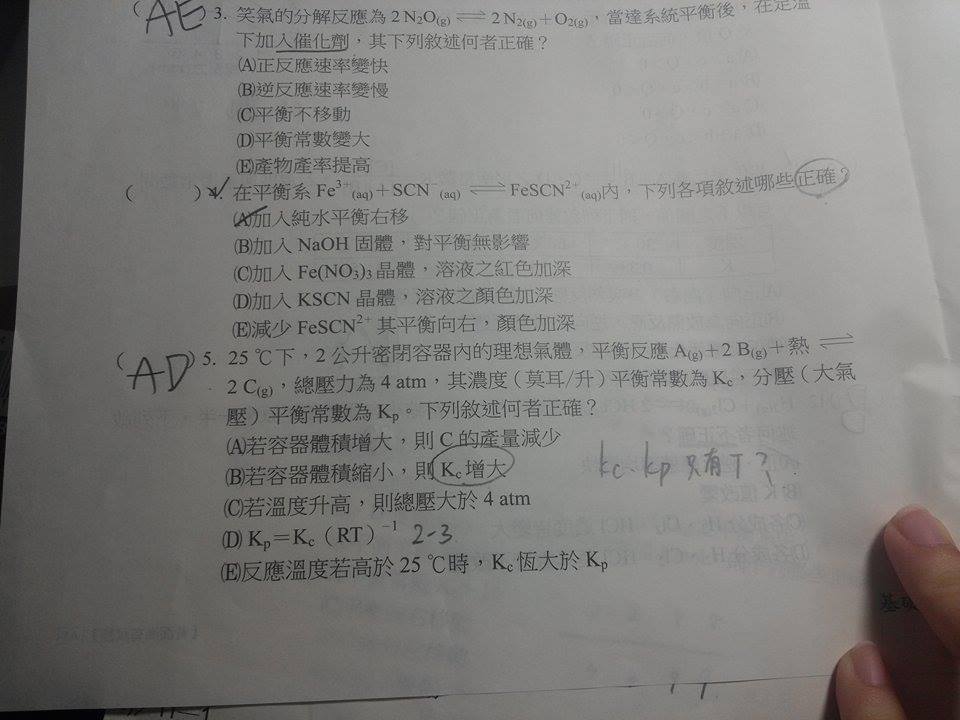 (AE) 3. 笑氣的分解反應為 2 N₂O(g) ⇌ 2 N₂(g) + O₂(g),當達系統平衡後,在定溫
下加入催化劑,其下列敘述何者正確?
(A)正反應速率變快
(B)逆反應速率變慢
(C)平衡不移動
(D)平衡常數變大
(E)產物產率提高
( ) 4. 在平衡系 Fe³⁺(aq) + SCN⁻(aq) ⇌ FeSCN²⁺(aq)內,下列各項敘述哪些正確?
(A)加入純水平衡右移
(B)加入 NaOH 固體,對平衡無影響
(C)加入 Fe(NO₃)₃ 晶體,溶液之紅色加深
(D)加入 KSCN 晶體,溶液之顏色加深
(E)減少 FeSCN²⁺ 其平衡向右,顏色加深
(AD) 5. 25 ℃下,2 公升密閉容器內的理想氣體,平衡反應 A(g) + 2 B(g) + 熱 ⇌
2 C(g),總壓力為 4 atm,其濃度(莫耳/升)平衡常數為 Kc,分壓(大氣
壓)平衡常數為 Kp。下列敘述何者正確?
(A)若容器體積增大,則 C 的產量減少
(B)若容器體積縮小,則 Kc 增大
kc、kp 只有 T?
(C)若溫度升高,則總壓大於 4 atm
(D) Kp = Kc(RT)⁻¹ 2-3
(E)反應溫度若高於 25 ℃時,Kc 恆大於 Kp
基礎